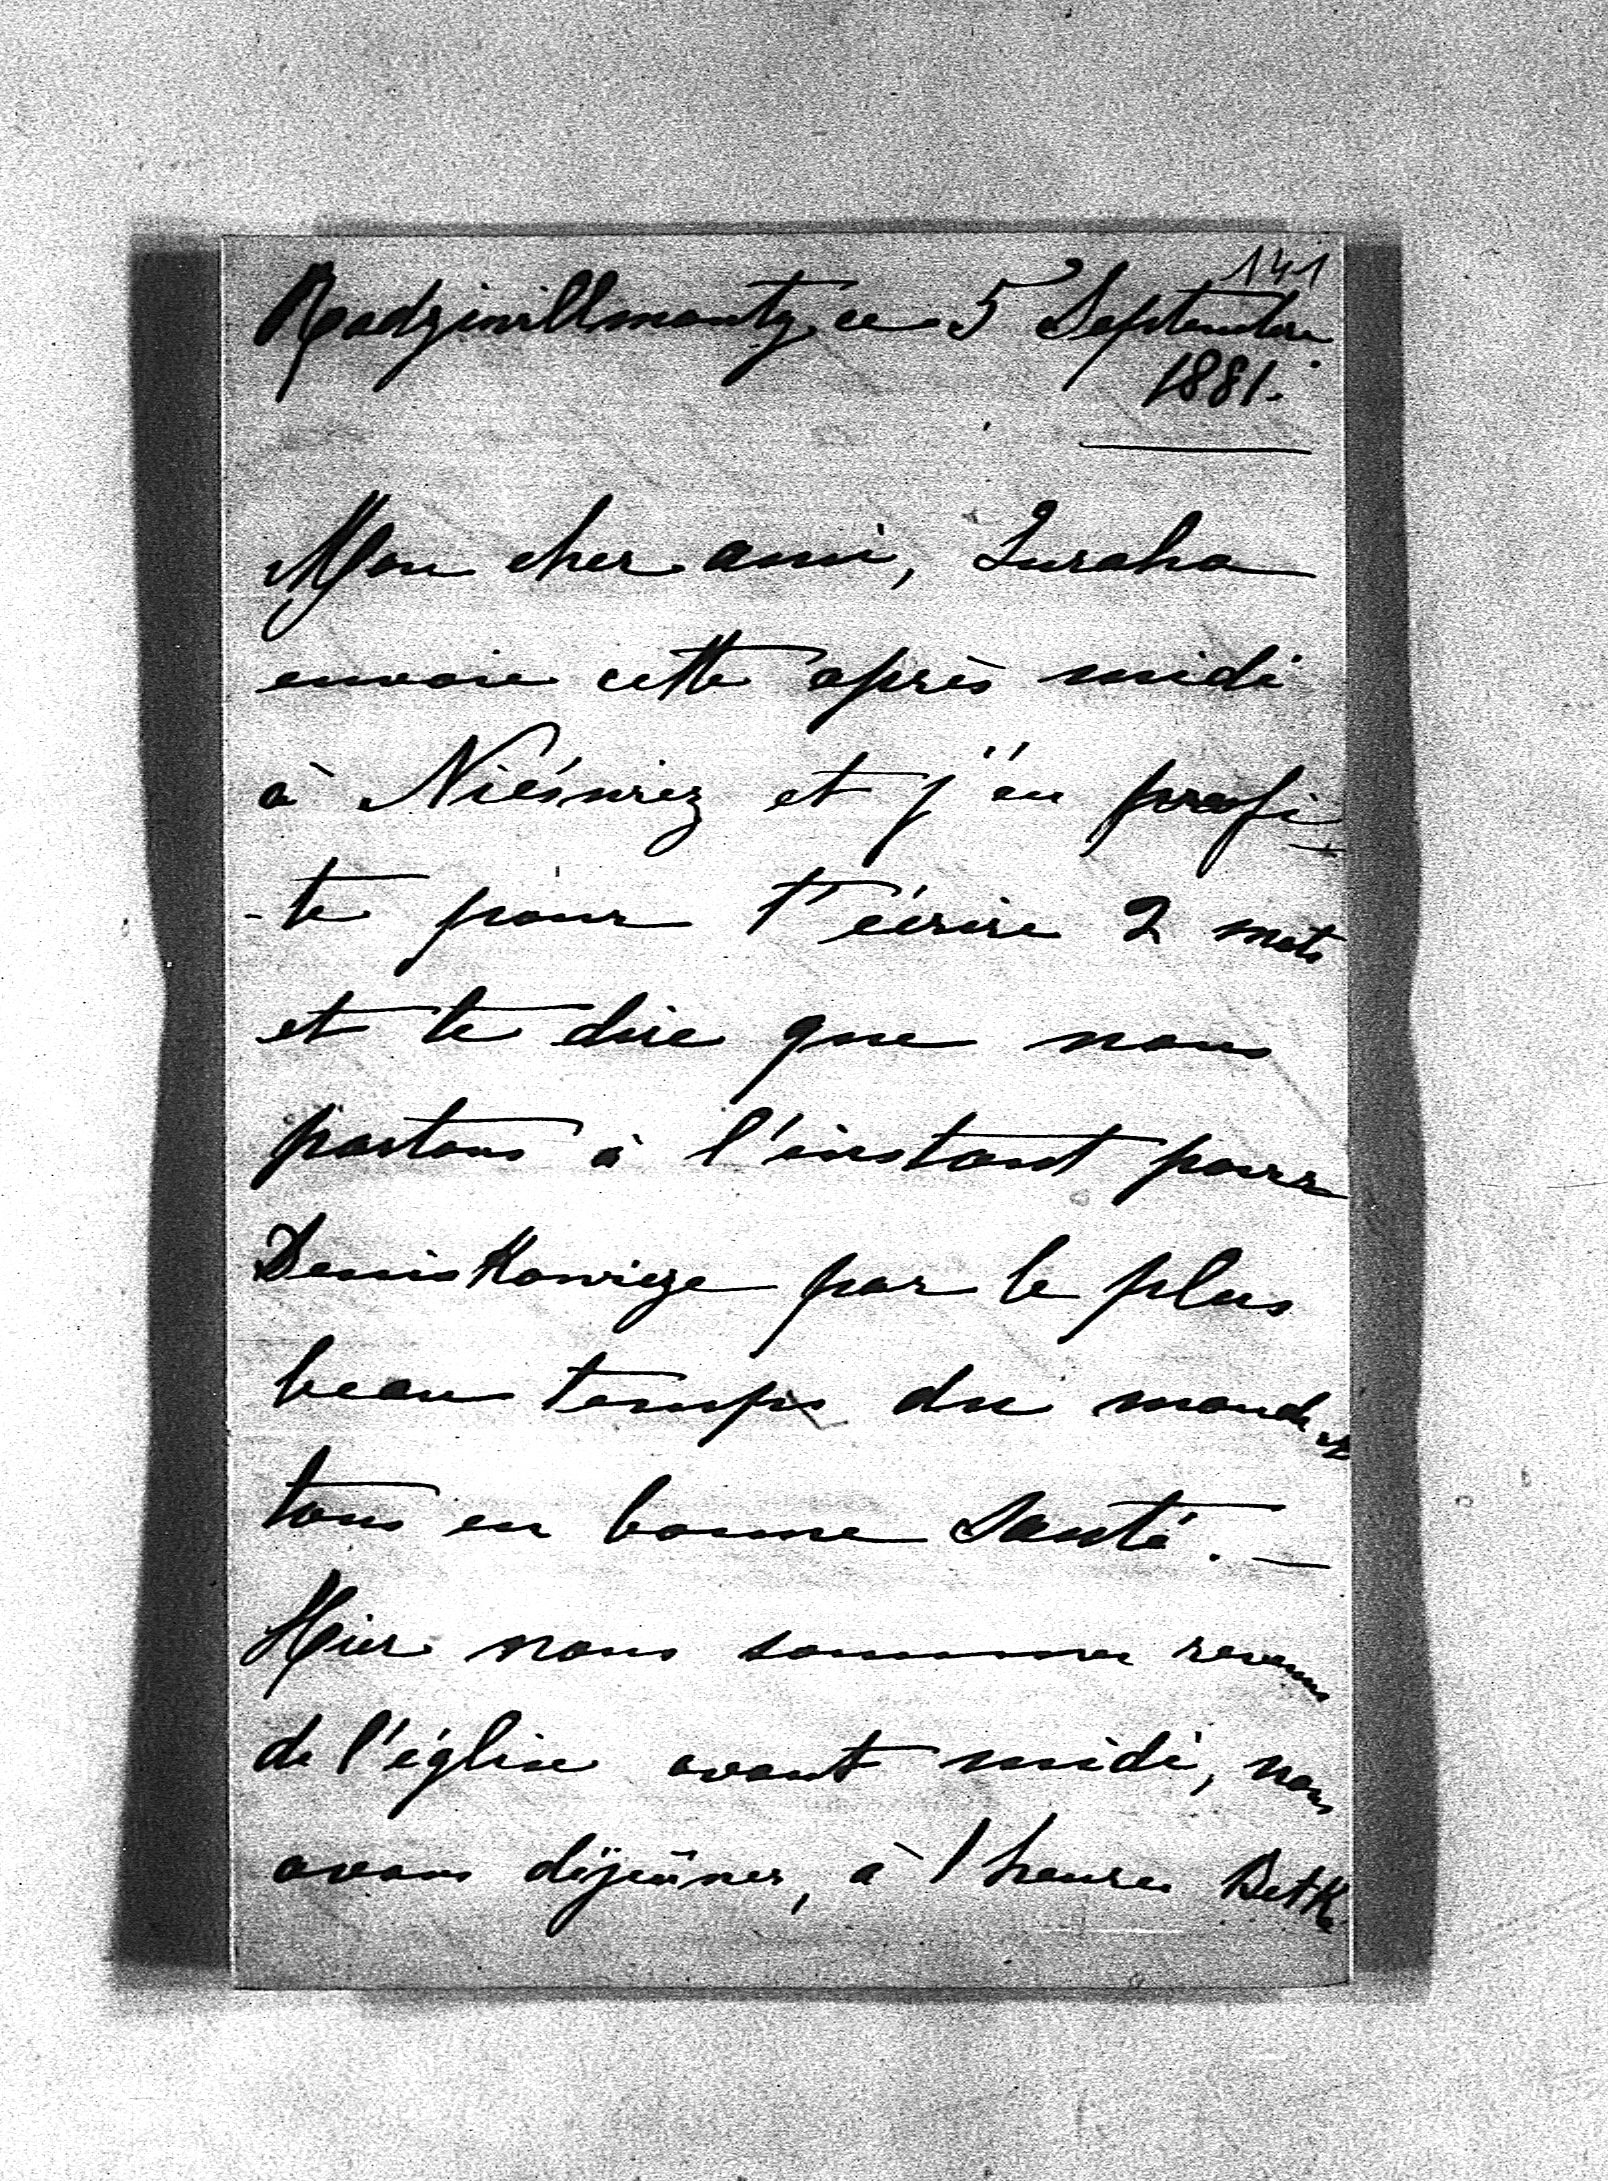 141
Radziwillmonty ce 5 Septembre
1881.
Mon cher ami,
envoie cette après midi
à Nieśwież et j'en profi
-te pour t'écrire 2 mots
et te dire que nous
partons à l'instant pour
Deniskowicze par le plus
beau temps du monde et
tous en bonne santé. —
Hier nous sommes revenus
de l'église avant midi, nous
avons déjeûner, à 1 heure